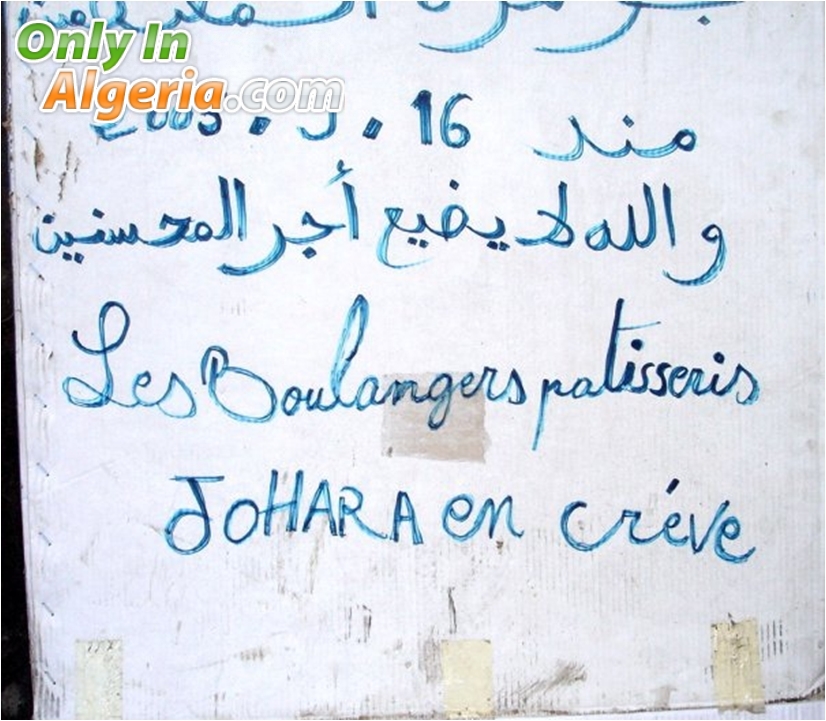 Only In
Algeria.com
مند 16 . 5 . 2005
والله لا يضيع أجر المحسنين
Les Boulangers patisseris
JOHARA en créve